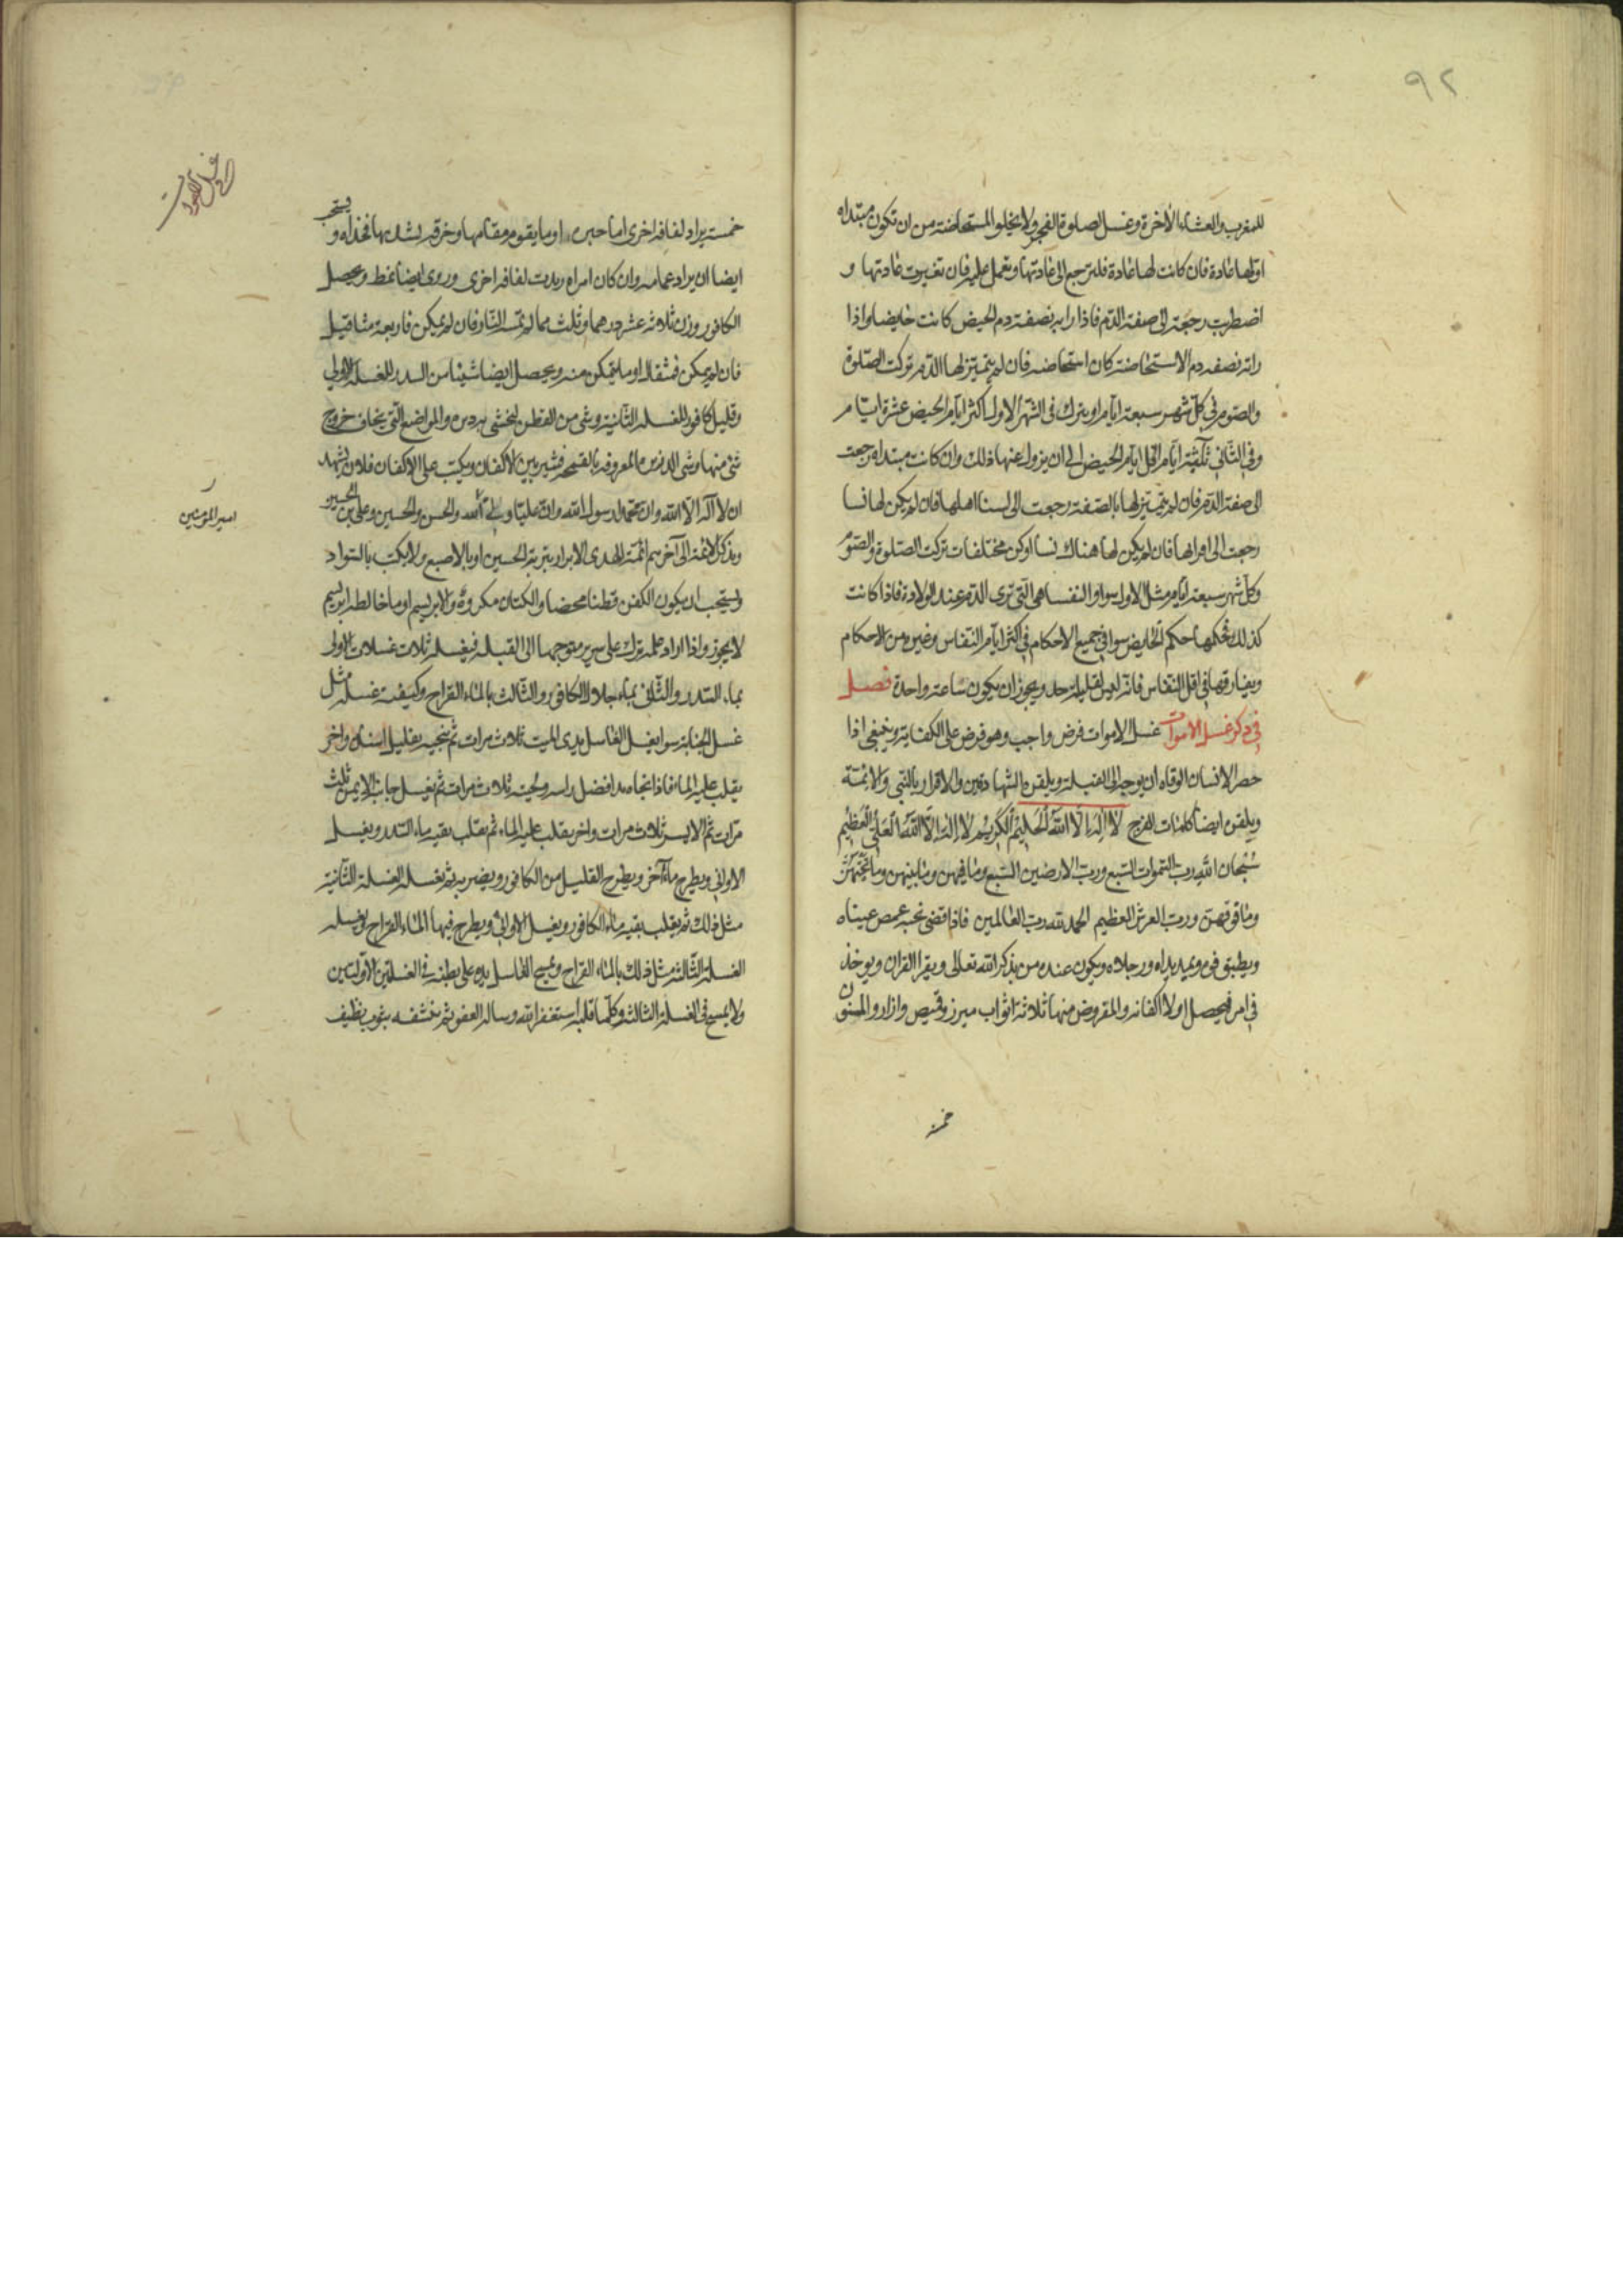 ٩٢
للمغرب والعشاء الأخرة وغسل لصلوة الفجر ولا يخلو المستحاضة من ان تكون مبتداه
اولها عادة فان كانت لها عادة فلترجع الى عادتها وتعمل عليه فان تغيرت عادتها و
اضطربت رجعته الى صفة الدم فاذا راته بصفة دم الحيض كانت حايضا واذا
راته بصفه دم الاستحاضة كان استحاضه فان لم يتميز لها الدم تركت الصلوة
والصوم في كل شهر سبعة ايام او يترك في الشهر الاول اكثر ايام الحيض عشرة ايام
وفي الثاني ثلثة ايام اقل ايام الحيض الى ان يزول عنها ذلك وان كانت مبتداه رجعت
الى صفة الدم فان لم يتميز لها بالصفة رجعت الى نسا اهلها فان لم يكن لها نسا
رجعت الى اقرانها فان لم يكن لها هناك نسا او كن مختلفات تركت الصلوة والصوم
وكل شهر سبعة ايام مثل الاول سوا والنفسا هي التي ترى الدم عند الولادة فاذا كانت
كذلك فحكمها حكم الحايض سوا في جميع الاحكام في اكثر ايام النفاس وغيره من الاحكام
ويفارقها في اقل النفاس فانه ليس لقليله حد ويجوز ان يكون ساعة واحدة فصل
في ذكر غسل الاموات غسل الاموات فرض واجب وهو فرض على الكفاية وينبغي اذا
حضر الانسان الوفاه ان يوجه الى القبلة ويلقن الشهادتين والاقرار بالنبي والائمة
ويلقن ايضا كلمات الفرج لا اله الا الله الحليم الكريم لا اله الا الله العلي العظيم
سبحان الله رب السموات السبع ورب الارضين السبع وما فيهن وما بينهن وما تحتهن
وما فوقهن ورب العرش العظيم الحمد لله رب العالمين فاذا قضى نحبه غمض عيناه
ويطبق فوه ويمد يداه ورجلاه ويكون عنده من يذكر الله تعالى ويقرا القران ويوخذ
في امره فيحصل اولا اكفانه والمفروض منها ثلاثة اثواب ميزر وقميص وازار والمسنون
خمسة
خمسة يراد لفافه اخرى اما حبره او ما يقوم مقامها وخرقه يشد بها فخذاه ويستحب
ايضا ان يراد عمامه وان كان امراه زيدت لفافه اخرى وروى ايضا نمط ويحصل
الكافور وزن ثلاثه عشر درهما وثلث مما لم تمسه النار فان لم يمكن فاربعة مثاقيل
فان لم يمكن فمثقال او ما يتمكن منه ويحصل ايضا شيئا من السدر للغسلة الاولى
وقليل كافور للغسله الثانية وشى من القطن ليخشى به دبره والمواضع التي يخاف خروج
شئ منها وشى الذريره المعروفه بالقمحه فشيربين الاكفان ويكتب على الاكفان فلان يشهد
ان لا اله الا الله وان محمدا رسول الله وان عليا ولي الله والحسن والحسين وعلي بن الحسين
ويذكر الائمة الى آخرهم ائمة الهدى الابرار بتربة الحسين او بالاصبع ولا يكتب بالسواد
ويستحب ان يكون الكفن قطنا محضا والكتان مكروه والابريسم او ما خالطه ابريسم
لا يجوز واذا اراد غسله ترك على سرير متوجها الى القبله فيغسله ثلاث غسلات الاولى
بماء السدر والثاني بماء جلال الكافور والثالث بالماء القراح وكيفية غسله مثل
غسل الجنابة سوا يغسل الغاسل يدى الميت ثلاث مرات ثم ينجيه بقليل اشنان واخر
يقلب عليه الماء فاذا نجاه بدا فغسل راسه ولحيته ثلاث مرات ثم يغسل جانبه الايمن ثلث
مرات ثم الايسر ثلاث مرات واخر يقلب عليه الماء ثم يقلب بقيه ماء السدر ويغسل
الاواني ويطرح ماء آخر ويطرح القليل من الكافور ويضربه ثم يغسله الغسلة الثانية
مثل ذلك ثم يقلب بقيه ماء الكافور ويغسل الاواني ويطرح فيها الماء القراح ويغسله
الغسلة الثالثه مثل ذلك بالماء القراح ويمسح الغاسل يده على بطنه في الغسلتين الاوليتين
ولا يمسح في الغسلة الثالثة وكلما قلبه استغفر الله وساله العفو ثم ينشفه بثوب نظيف
امير المؤمنين